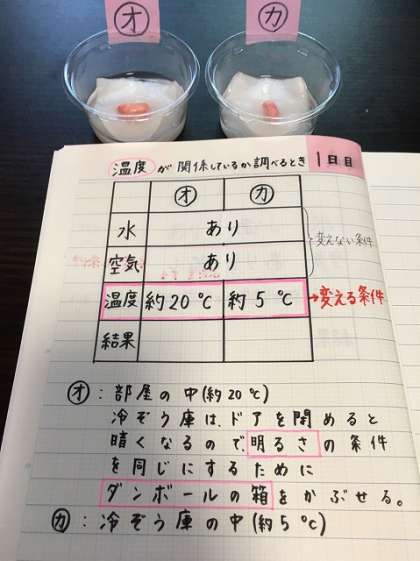 オ カ
温度が関係しているか調べるとき 1日目
オ カ
水 あり
空気 あり
変えない条件
温度 約20℃ 約5℃ →変える条件
結果
オ:部屋の中(約20℃)
冷ぞう庫は、ドアを閉めると
暗くなるので、明るさの条件
を同じにするために
ダンボールの箱をかぶせる。
カ:冷ぞう庫の中(約5℃)